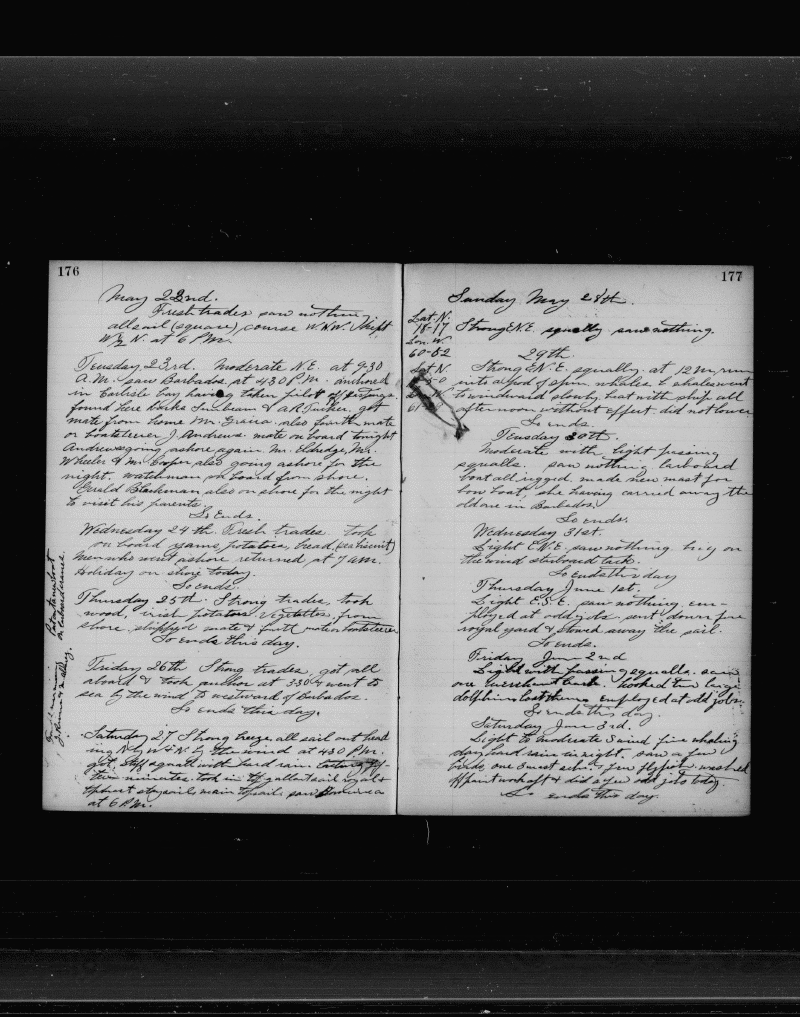 176
May 22nd.
Fresh trades saw nothing
all sail (square), course W.N.W. Shift
W 1/2 N. at 6 P.M.
Tuesday 23rd. Moderate N.E. at 9.30
A.M. saw Barbados at 4.30 P.M. anchored
in Carlisle bay having taken pilot
found here barks Sunbeam & A.R. Tucker, got
mate from home Mr. also fourth mate
or boatsteerer J. Andrews mate on board tonight
Andrews going ashore again Mr. Eldredge, Mr.
Wheeler & Mr. Cooper also going ashore for the
night. watchman on board from shore.
Gerald Blackman also on shore for the night
to visit his parents.
So Ends.
Wednesday 24th Fresh trades took
on board yams, potatoes, bread, (sea biscuit)
Men who went ashore returned at 7 A.M.
Holiday on shore today.
So ends.
Thursday 25th. Strong trades, took
wood, irish potatoes vegetables, from
shore shipped mate & fourth mate or boatsteerer
So ends this day.
Friday 26th Strong trades, got all
aboard & took anchor at 3.30 & went to
sea by the wind to westward of Barbados.
So ends this day.
Saturday 27 Strong breeze, all sail out head
ing N by W & N. by the wind at 4.30 P.M.
got stiff squall with hard rain lasting
ten minutes. took in
staysails main topsail. saw Dominica
at 6 P.M.
on larboard cranes.
177
Sunday May 28th.
Lat N.
18-17 Strong E.N.E. squally saw nothing.
Lon. W.
60-52
29th.
Lat N. Strong E.N.E. squally. at 12 M, run
into a pod of spm. whales & whales went
to windward slowly, beat with ship all
afternoon without effect did not lower
So ends.
Tuesday 30th.
Moderate with light passing
squalls. saw nothing larboard
boat all rigged, made new mast for
bow boat, she having carried away the
old one in Barbados.
So ends.
Wednesday 31st.
Light E.N.E. saw nothing. by on
the wind starboard tack.
So ends this day
Thursday June 1st.
Light E.S.E. saw nothing em-
ployed at odd jobs sent down fore
royal yard & stowed away the sail.
So ends.
Friday June 2nd
Light with passing squalls. saw
one merchant bark. hooked two large
dolphins lost them employed at odd jobs.
So ends this day.
Saturday June 3rd.
Light to moderate S wind fine whaling
day hard rain in night. saw a few
birds, one & few flyfish. washed
off paintwork aft & did a few odd jobs today.
So ends this day.